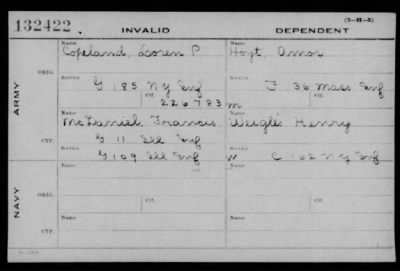 132422. INVALID DEPENDENT (3-H-5)
ARMY
ORIG. Name Copeland, Loren P Name Hoyt, Amos
Service G 185 N Y Inf Service F 36 Mass Inf
Ctf. 226783 Ctf. m
CTF. Name McDaniel, Francis Name Weigle Henry
G 11 Ill Inf
G 109 Ill Inf W C 102 N Y Inf
NAVY
ORIG. Name Name
Ctf. Ctf.
CTF. Name Name